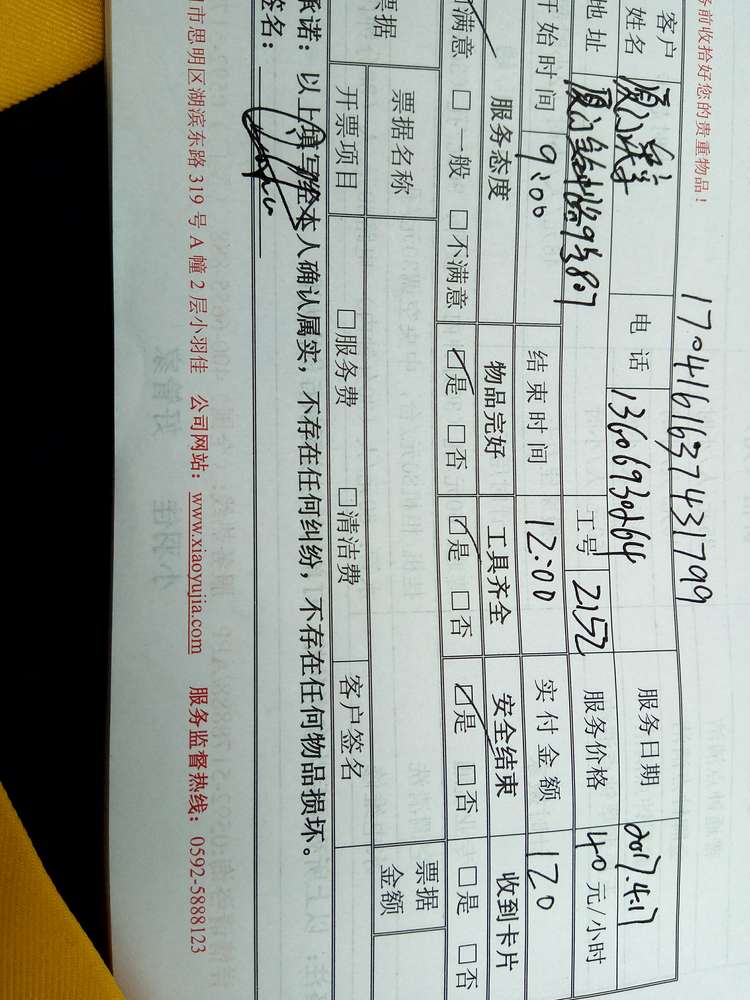 务前收拾好您的贵重物品！
1704161637431799
客户姓名 电话 13606930264 服务日期 2017.4.17
地址 工号 2152 服务价格 40 元/小时
开始时间 9:00 结束时间 12:00 实付金额 120
服务态度 物品完好 工具齐全 安全结束 收到卡片
满意 □ 一般 □ 不满意 ☑是 □否 ☑是 □否 ☑是 □否 □是 □否
票据 票据名称 客户签名 票据金额
开票项目 □服务费 □清洁费
承诺：以上填写经本人确认属实，不存在任何纠纷，不存在任何物品损坏。
签名：
市思明区湖滨东路 319 号 A 幢 2 层小羽佳 公司网站：www.xiaoyujia.com 服务监督热线：0592-5888123